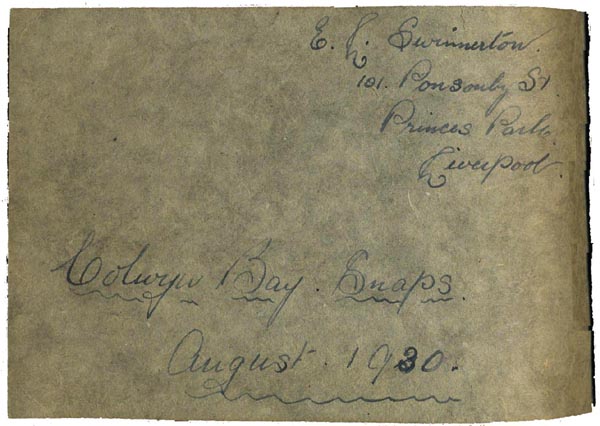 E. L. Swinnerton.
101. Ponsonby St.
Princes Park.
Liverpool.
Colwyn Bay. Snaps.
August. 1930.